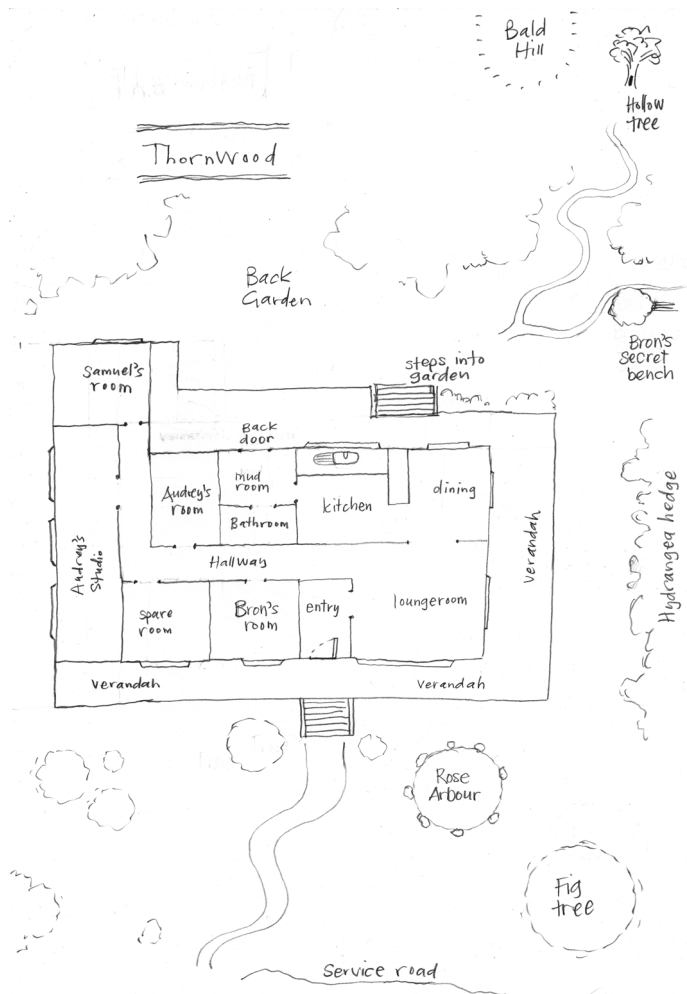 Bald
Hill
Hollow
tree
ThornWood
Back
Garden
Bron's
secret
bench
steps into
garden
Samuel's
room
Back
door
Audrey's
room
mud
room
Bathroom
kitchen
dining
Verandah
Hydrangea hedge
Audrey's
Studio
Hallway
spare
room
Bron's
room
entry
loungeroom
Verandah
Verandah
Rose
Arbour
Fig
tree
Service road